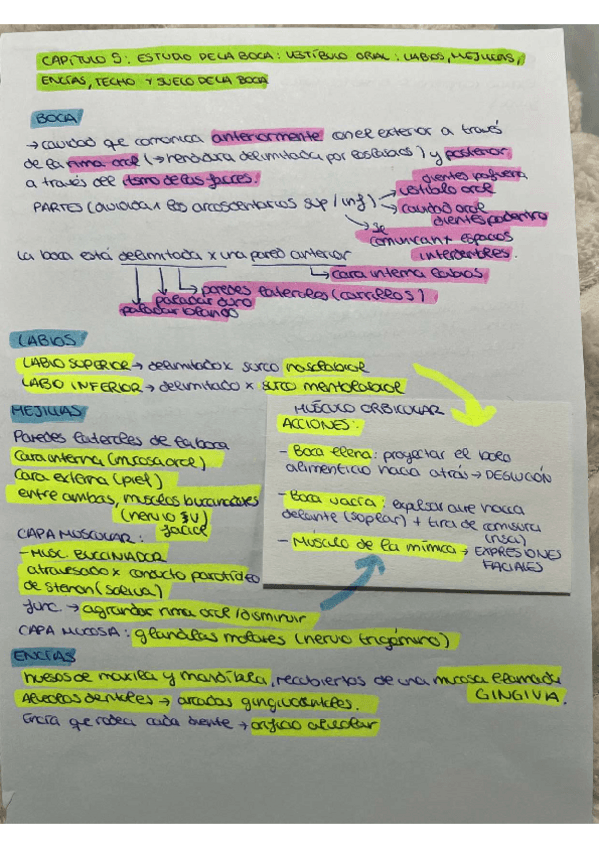 CAPÍTULO 5: ESTUDIO DE LA BOCA: VESTÍBULO ORAL: LABIOS, MEJILLAS,
ENCÍAS, TECHO Y SUELO DE LA BOCA
BOCA
→ cavidad que comunica anteriormente con el exterior a través
de la rima oral (→ hendidura delimitada por los labios) y posterior
a través del istmo de las fauces.
PARTES (dividida x los arcos dentarios sup / inf)
dientes por fuera
vestíbulo oral
cavidad oral
dientes por dentro
→ se
comunican x espacios
interdentales.
La boca está delimitada x una pared anterior
→ cara interna labios
→ paredes laterales (carrillos)
paladar duro
paladar blando
LABIOS
LABIO SUPERIOR → delimitado x surco nasolabial
LABIO INFERIOR → delimitado x surco mentolabial
MEJILLAS
Paredes laterales de la boca
Cara interna (mucosa oral)
Cara externa (piel)
entre ambas, músculos buccinadores
(nervio
facial
CAPA MUSCULAR:
- MUSC. BUCCINADOR
atravesado x conducto parotídeo
de Stenon (saliva)
func. → agrandar rima oral / disminuir
CAPA MUCOSA: glándulas molares (nervio trigémino)
MÚSCULO ORBICULAR
ACCIONES:
- Boca llena: proyectar el bolo
alimenticio hacia atrás → DEGLUCIÓN
- Boca vacía: expulsar aire hacia
delante (soplar) + tira de comisura
(risa)
- Músculo de la mímica → EXPRESIONES
FACIALES
ENCÍAS
huesos de maxila y mandíbula, recubiertos de una mucosa llamada
GINGIVA.
Alveolos dentales → arcadas gingivodentales.
Encía que rodea cada diente → orificio alveolar